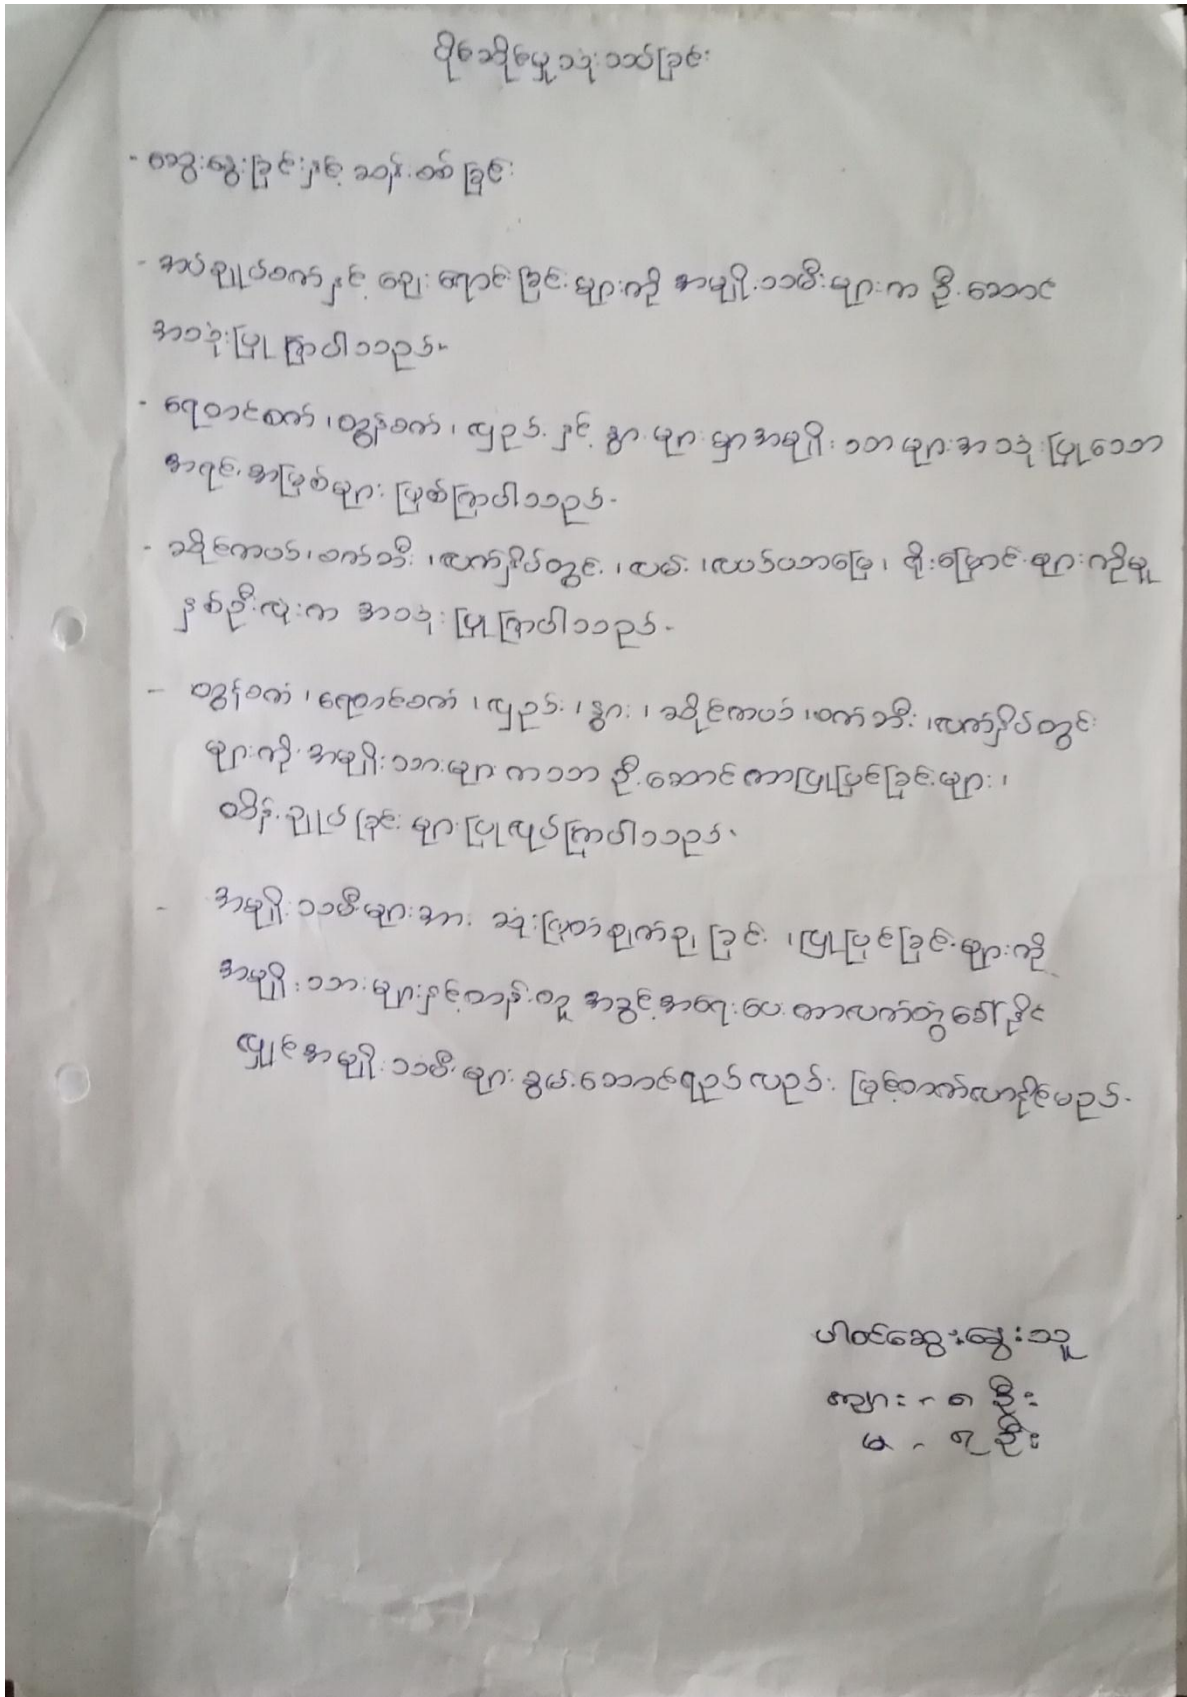 ပိုဆိုမှုသုံးသပ်ခြင်း
- ဆွေးနွေးခြင်းနှင့် ဆန်းစစ်ခြင်း
- အပ်ချုပ်စက်နှင့် ဈေးရောင်းခြင်းများကို အမျိုးသမီးများက ဦးဆောင်
အသုံးပြုကြပါသည်။
- ရေတင်စက်၊ ထွန်စက်၊ လှည်းနှင့် နွားများမှာ အမျိုးသားများ အသုံးပြုသော
အရင်းအမြစ်များ ဖြစ်ကြပါသည်။
- ဆိုင်ကယ်၊ စက်ဘီး၊ လက်နှိပ်တွင်း၊ လမ်း၊ လယ်ယာမြေ၊ မြောင်းများကိုမူ
နှစ်ဦးလုံးက အသုံးပြုကြပါသည်။
- ထွန်စက်၊ ရေတင်စက်၊ လှည်း၊ နွား၊ ဆိုင်ကယ်၊ စက်ဘီး၊ လက်နှိပ်တွင်း
များကို အမျိုးသားများကသာ ဦးဆောင်ကာ ပြုပြင်ခြင်းများ၊
ထိန်းချုပ်ခြင်းများ ပြုလုပ်ကြပါသည်။
- အမျိုးသမီးများအား ဆုံးဖြတ်ချက်ချခြင်း၊ ပြုပြင်ခြင်းများကို
အမျိုးသားများနှင့်တန်းတူ အခွင့်အရေးပေးကာ လက်တွဲခေါ်နိုင်
လျှင် အမျိုးသမီးများ စွမ်းဆောင်ရည်လည်း မြင့်တက်လာနိုင်မည်။
ပါဝင်ဆွေးနွေးသူ
ကျား - ၈ ဦး
မ - ၇ ဦး